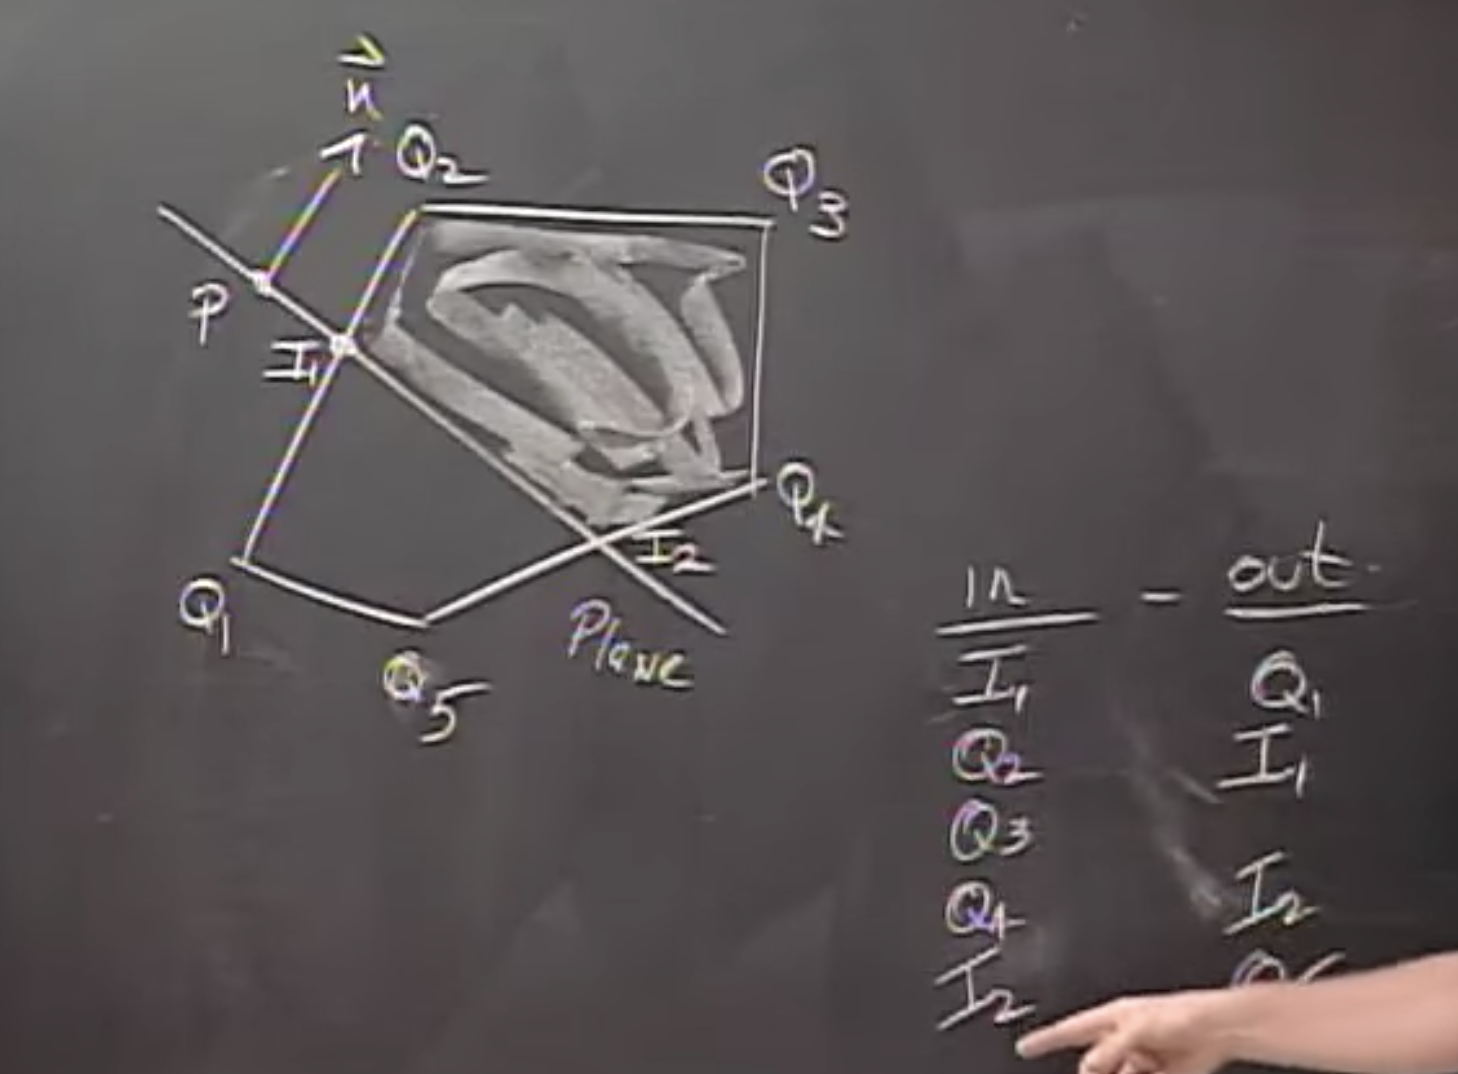 n
Q2
Q3
P
I1
Q4
I2
Q1
Plane
Q5
in - out
I1 Q1
Q2 I1
Q3
Q4 I2
I2